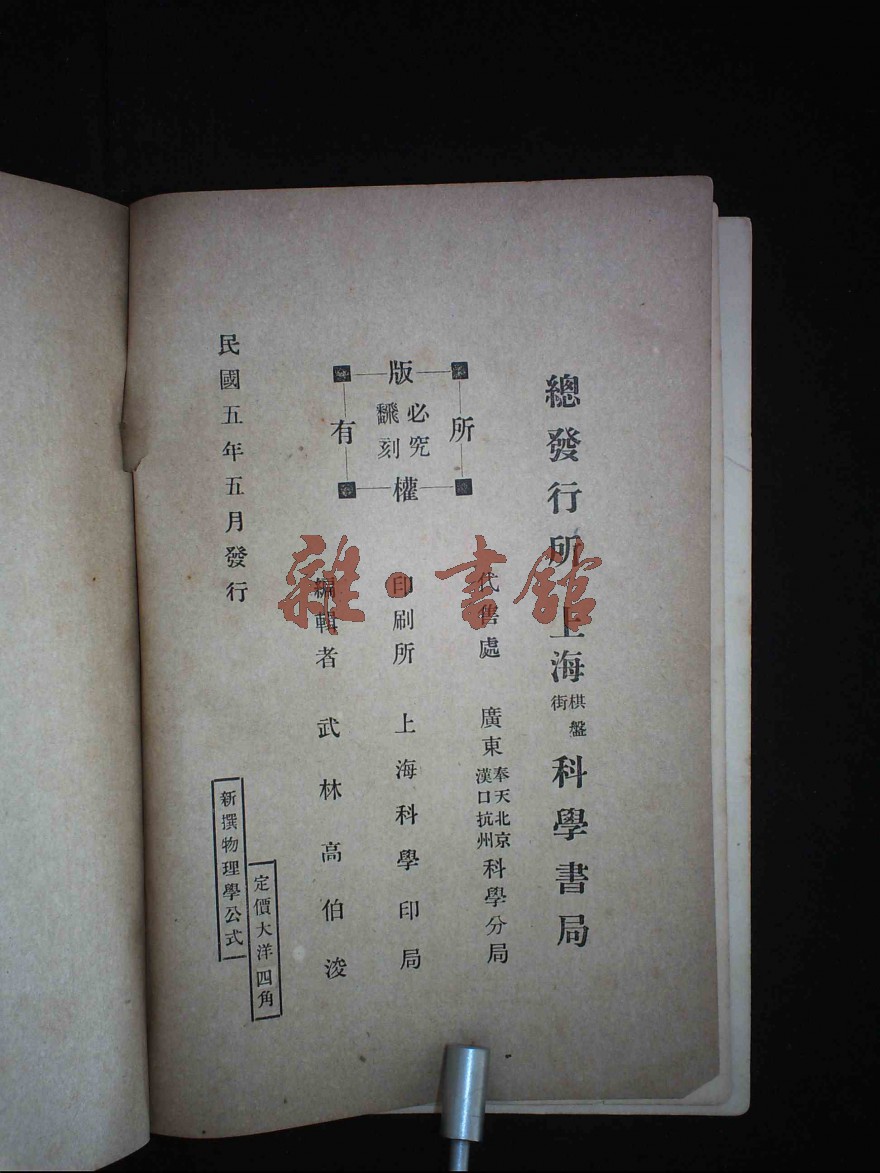 總發行所 上海 棋盤街 科學書局
代售處 廣東 奉天北京漢口杭州 科學分局
版權所有
飜刻必究
印刷所 上海科學印局
編輯者 武林高伯浚
定價大洋四角
民國五年五月發行
新撰物理學公式
雜·書館